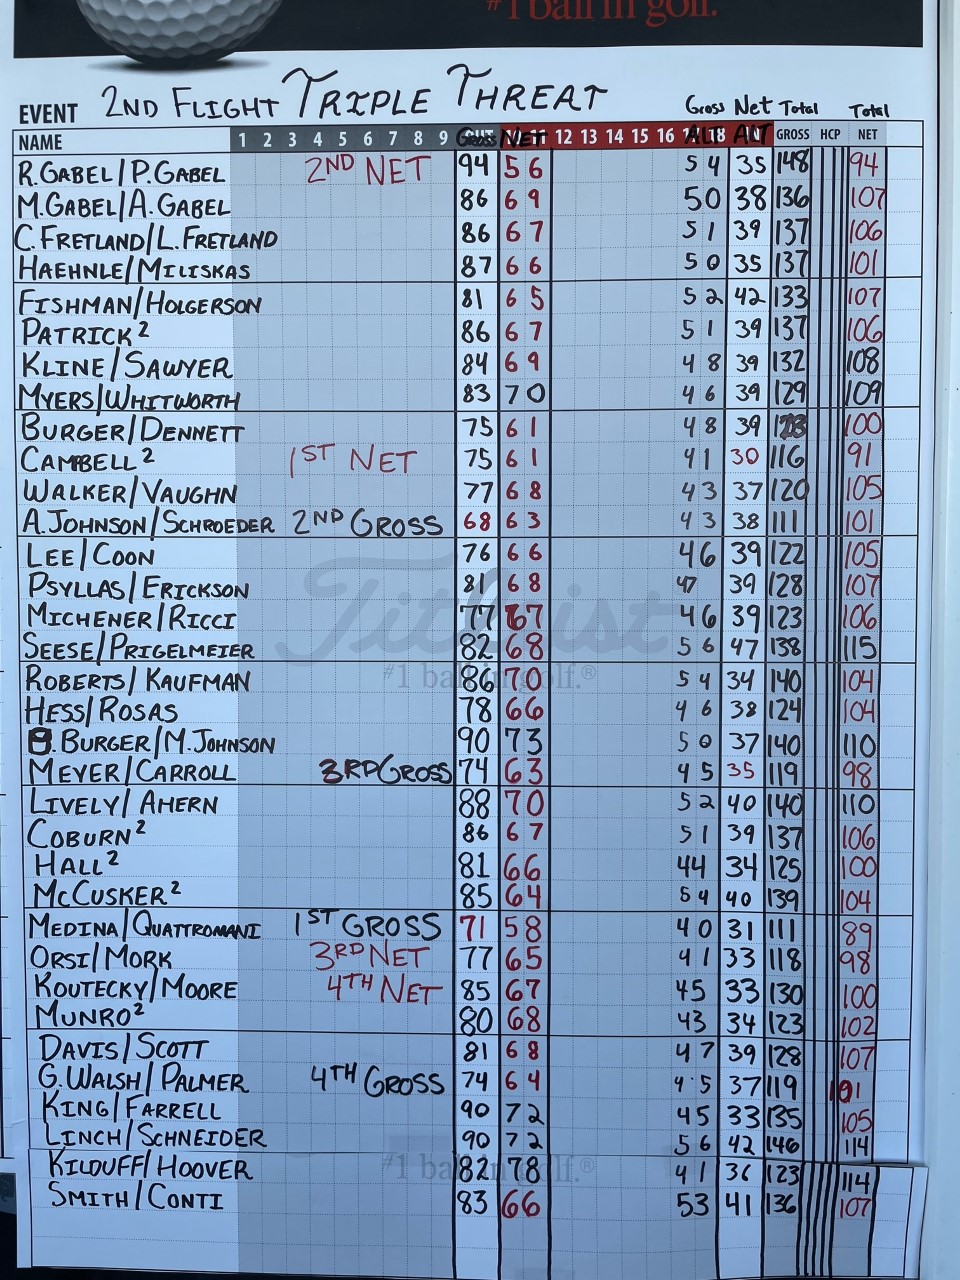 #1 ball in golf.
EVENT 2ND FLIGHT TRIPLE THREAT Gross Net Total Total
NAME 1 2 3 4 5 6 7 8 9 Gross NET 12 13 14 15 16 18 ALT ALT GROSS HCP NET
R. GABEL/P. GABEL 2ND NET 94 56 54 35 148 94
M. GABEL/A. GABEL 86 69 50 38 136 107
C. FRETLAND/L. FRETLAND 86 67 51 39 137 106
HAEHNLE/MILISKAS 87 66 50 35 137 101
FISHMAN/HOLGERSON 81 65 52 42 133 107
PATRICK² 86 67 51 39 137 106
KLINE/SAWYER 84 69 48 39 132 108
MYERS/WHITWORTH 83 70 46 39 129 109
BURGER/DENNETT 75 61 48 39 123 100
CAMPBELL² 1ST NET 75 61 41 30 116 91
WALKER/VAUGHN 77 68 43 37 120 105
A. JOHNSON/SCHROEDER 2ND GROSS 68 63 43 38 111 101
LEE/COON 76 66 46 39 122 105
PSYLLAS/ERICKSON 81 68 47 39 128 107
MICHENER/RICCI 77 67 46 39 123 106
SEESE/PRIGELMEIER 82 68 56 47 138 115
Titleist
#1 ball in golf.®
ROBERTS/KAUFMAN 86 70 54 34 140 104
HESS/ROSAS 78 66 46 38 124 104
BURGER/M. JOHNSON 90 73 50 37 140 110
MEYER/CARROLL 3RD GROSS 74 63 45 35 119 98
LIVELY/AHERN 88 70 52 40 140 110
COBURN² 86 67 51 39 137 106
HALL² 81 66 44 34 125 100
MCCUSKER² 85 64 54 40 139 104
MEDINA/QUATTROMANI 1ST GROSS 71 58 40 31 111 89
ORSI/MORK 3RD NET 77 65 41 33 118 98
KOUTECKY/MOORE 4TH NET 85 67 45 33 130 100
MUNRO² 80 68 43 34 123 102
DAVIS/SCOTT 81 68 47 39 128 107
G. WALSH/PALMER 4TH GROSS 74 64 45 37 119 101
KING/FARRELL 90 72 45 33 135 105
LINCH/SCHNEIDER 90 72 56 42 146 114
#1 ball in golf.®
KILDUFF/HOOVER 82 78 41 36 123 114
SMITH/CONTI 83 66 53 41 136 107